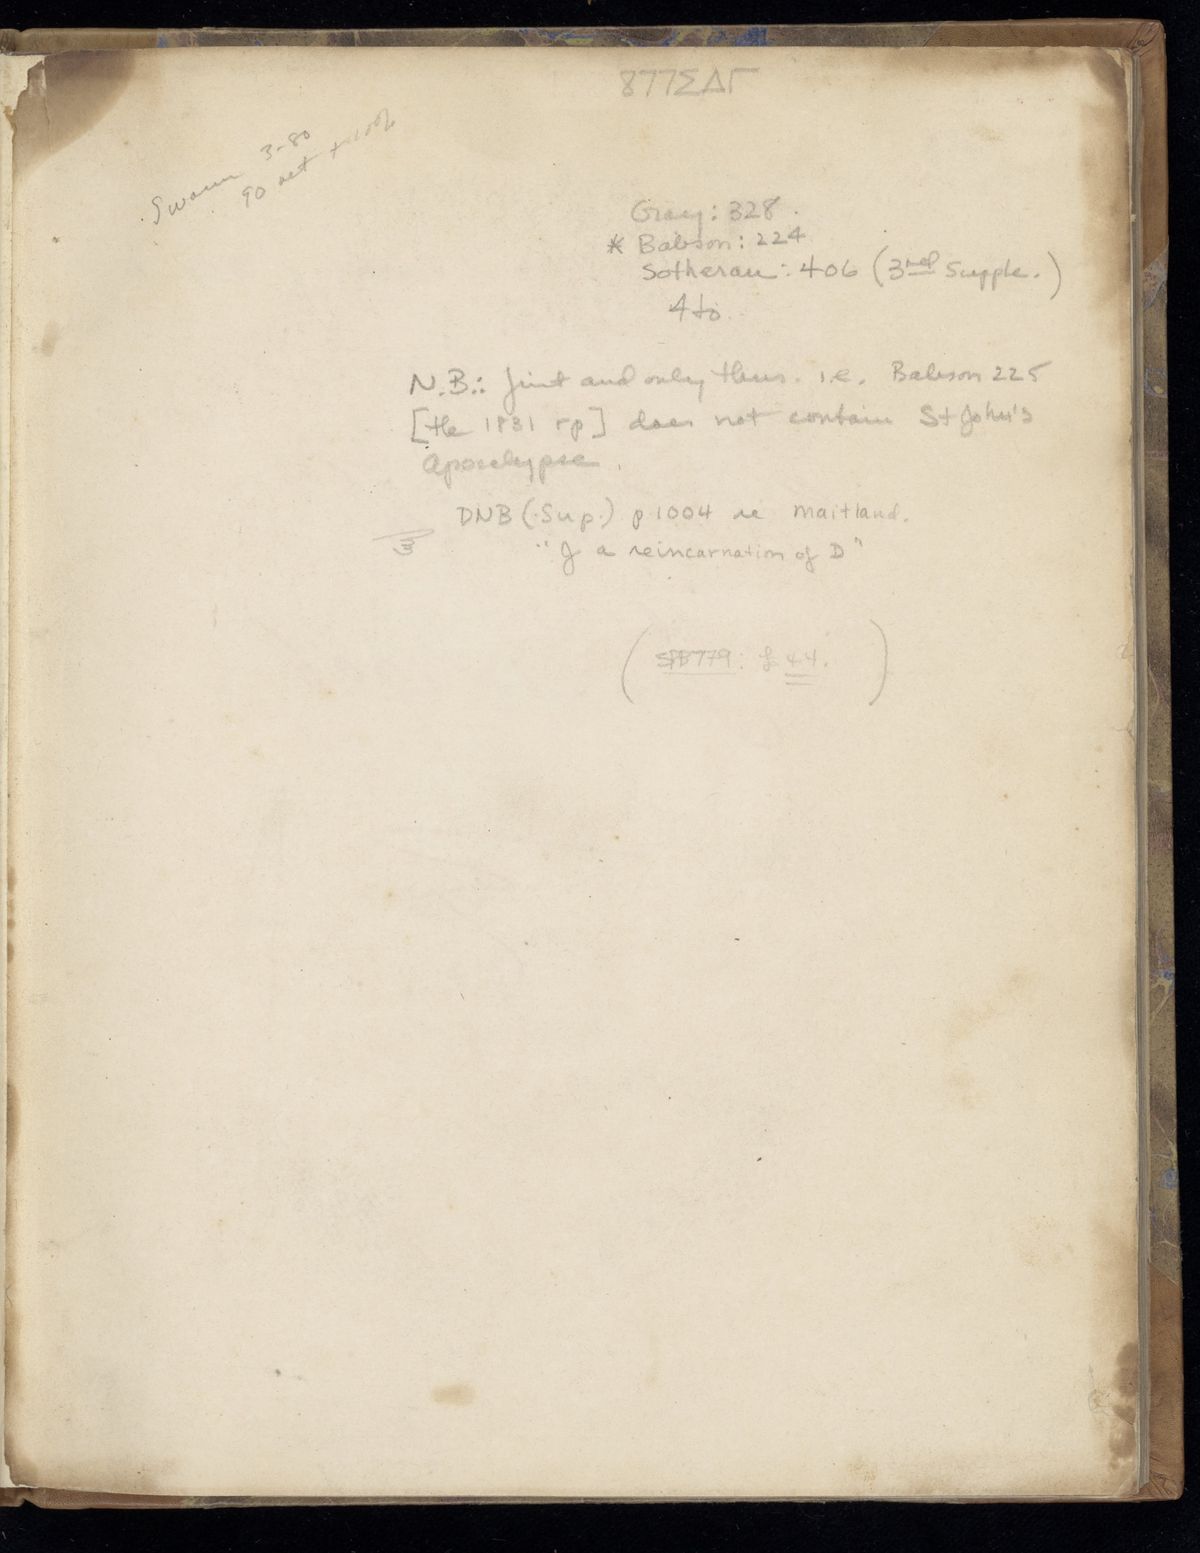 877ΣΔΓ
Swann 3-80
90 net + 100%
Gray: 328.
* Babson: 224
Sotheran: 406 (3rd Supple.)
4to.
N.B.: first and only thus. i.e. Babson 225
[the 1831 rp] does not contain St John's
Apocalypse.
DNB (Sup.) p 1004 re Maitland.
"J a reincarnation of D"
(SPB779: £44.)